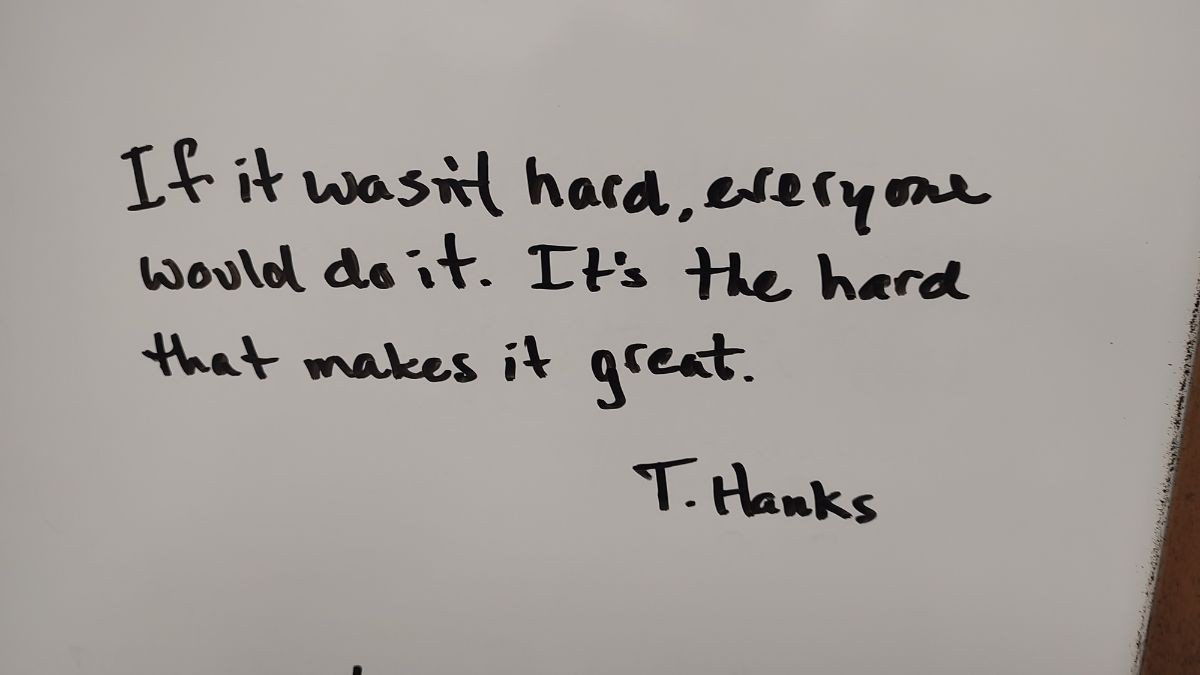 If it wasn't hard, everyone
would do it. It's the hard
that makes it great.
T. Hanks